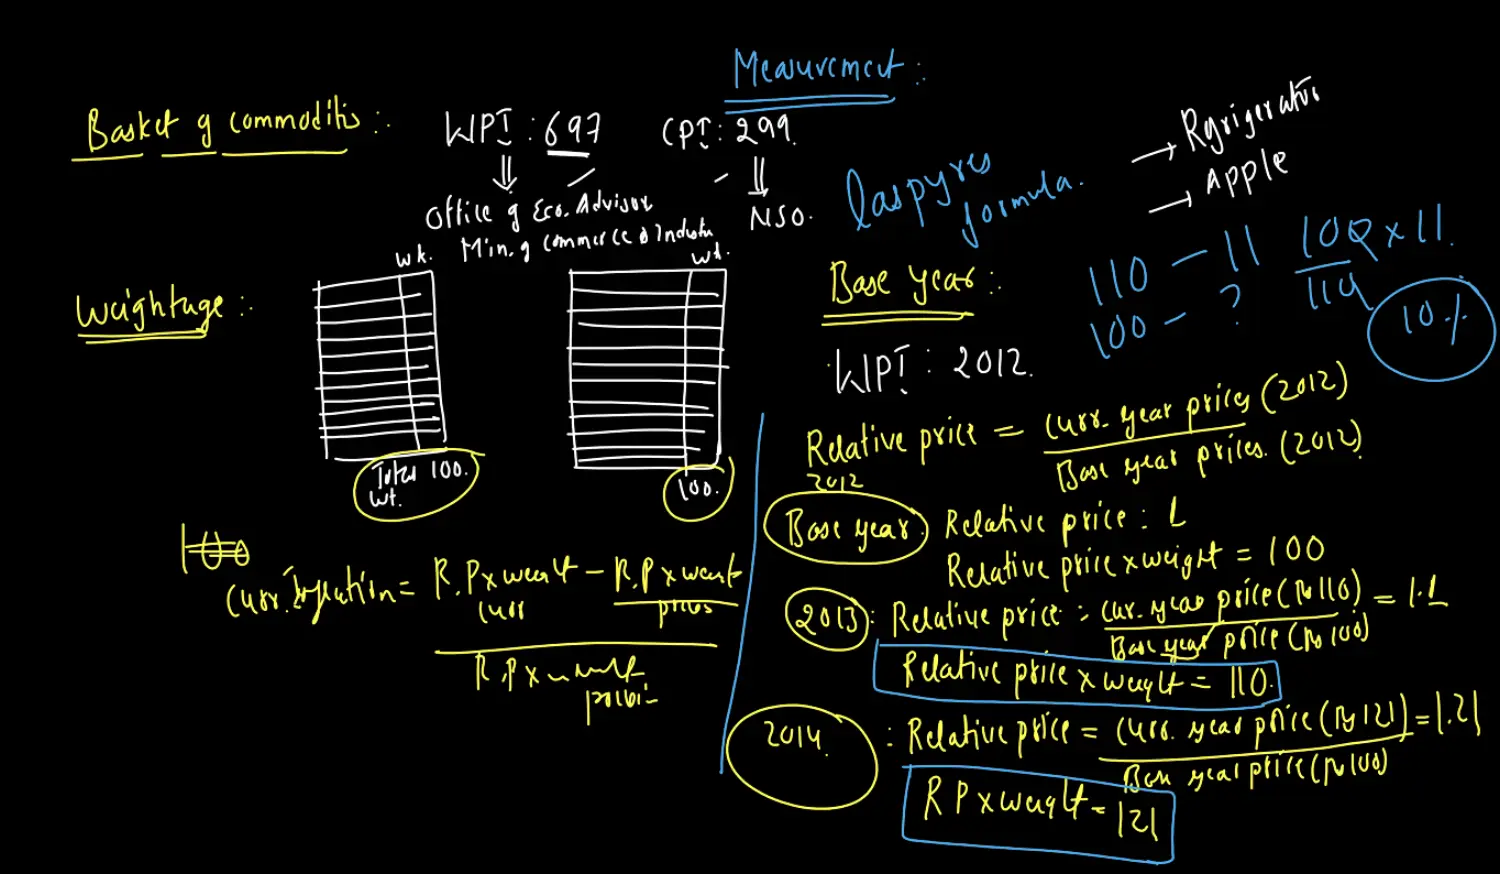 Measurement :
Basket of commodities :
WPI : 697
CPI : 299
Office of Eco. Advisor
Min. of commerce & Industr
NSO.
laspyres
formula.
→ Refrigerator
→ Apple
Weightage :
wt.
wt.
Total 100.
wt.
100.
Base year :
WPI : 2012.
110 - 11
100 - ?
100 x 11
110
10%
Relative price = Curr. year prices (2012)
Base year prices. (2012)
2012
Base year Relative price : 1
Relative price x weight = 100
2013 : Relative price = Cur. year price (Rs 110) = 1.1
Base year price (Rs 100)
Relative price x weight = 110.
2014 : Relative price = Curr. year price (Rs 121) = 1.21
Base year price (Rs 100)
R P x weight = 121
100
Curr. Inflation = R.P x weight - R.P x weight
curr
R.P x